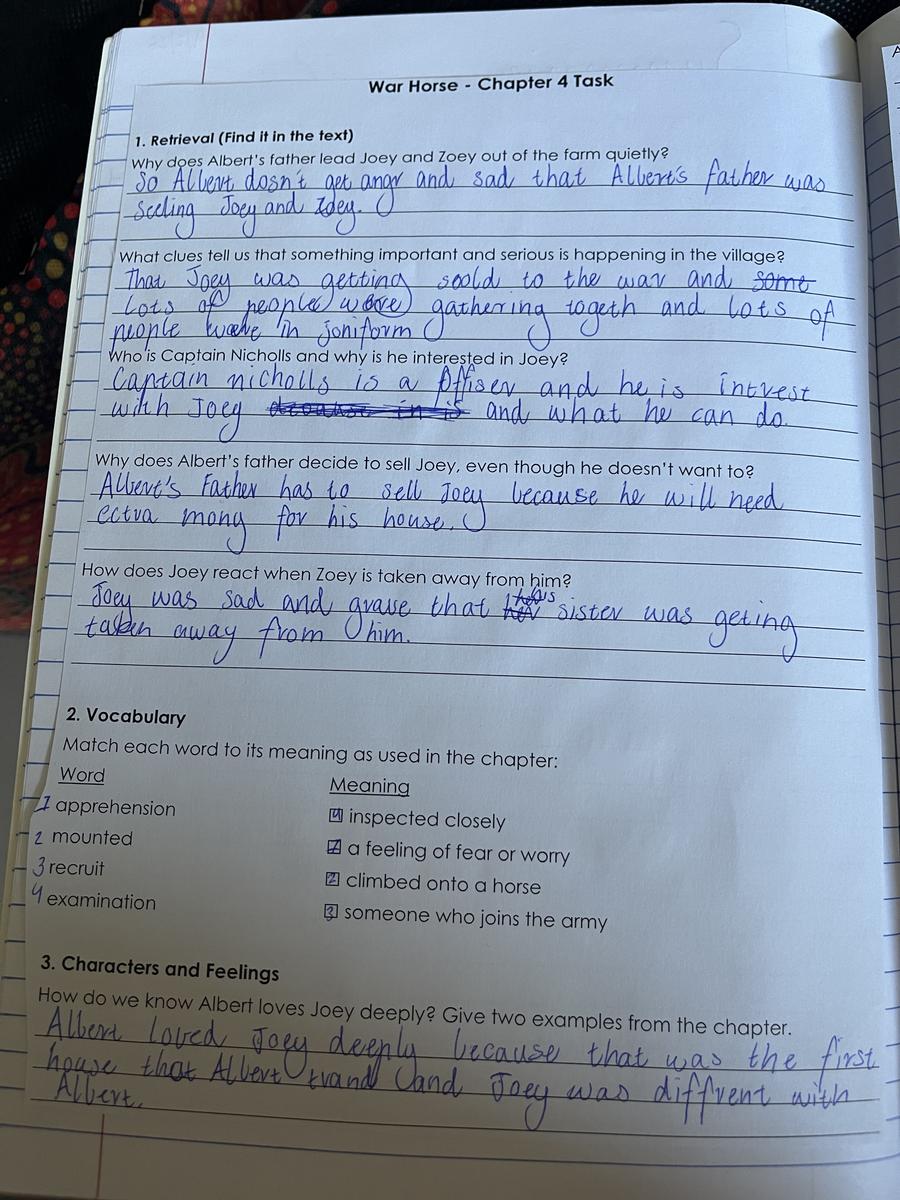 War Horse - Chapter 4 Task
1. Retrieval (Find it in the text)
Why does Albert's father lead Joey and Zoey out of the farm quietly?
So Albert dosn't get angr and sad that Albert's father was
seeling Joey and Zoey.
What clues tell us that something important and serious is happening in the village?
That Joey was getting soold to the war and some
Lots of people were gathering togeth and lots of
people were in joniform
Who is Captain Nicholls and why is he interested in Joey?
Captain nicholls is a offiser and he is intrest
with Joey and what he can do.
Why does Albert's father decide to sell Joey, even though he doesn't want to?
Albert's Father has to sell Joey because he will need
ectra mony for his house.
How does Joey react when Zoey is taken away from him?
Joey was sad and grause that his sister was geting
taken away from him.
2. Vocabulary
Match each word to its meaning as used in the chapter:
Word
Meaning
1 apprehension
4 inspected closely
2 mounted
1 a feeling of fear or worry
3 recruit
2 climbed onto a horse
4 examination
3 someone who joins the army
3. Characters and Feelings
How do we know Albert loves Joey deeply? Give two examples from the chapter.
Albert loved Joey deeply because that was the first
house that Albert trand and Joey was diffrent with
Albert.